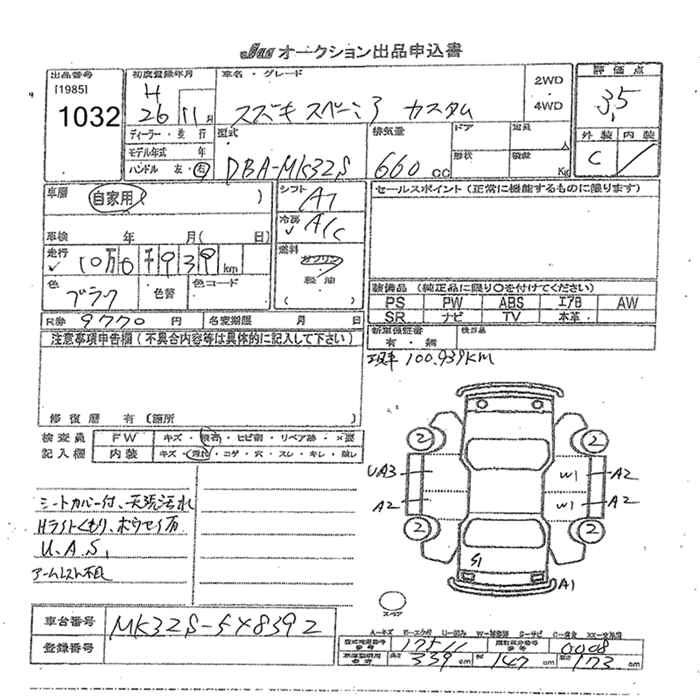 JAA オークション出品申込書
出品番号 初度登録年月 車名・グレード 2WD ・ 4WD 評価点
[1985] 1032
H 26 11月 スズキ スペーシア カスタム 3.5
ディーラー・並行 型式 排気量 ドア 定員 人 外装 内装
モデル年式 年 DBA-MK32S 660 cc 形状 積載 Kg C
ハンドル 左・右
車歴 自家用 ( ) シフト AT セールスポイント(正常に機能するものに限ります)
車検 年 月( 日) 冷房 A/C
走行 10万0千939 km 燃料 ガソリン 軽油
色 ブラック 色替 色コード ( ) 装備品 (純正品に限り○を付けてください)
PS PW ABS エアB AW
SR ナビ TV 本革
R券 9770 円 名変期限 月 日 新車保証書 有・無 検査員
注意事項申告欄(不具合内容等は具体的に記入して下さい) 現車 100.939KM
修復歴 有(箇所
検査員 FW キズ・飛石・ヒビ割・リペア跡・×要
記入欄 内装 キズ・汚れ・コゲ・穴・スレ・キレ・
2 2
UA3 W1 A2
A2 W1 A2
2 2
S1
A1
シートカバー付、天張汚れ
Hライトくもり、ホウセイ有
U.A.S,
アームレスト不良
スペア
車台番号 MK32S-548392
登録番号
A-キズ U-凹み S-サビ C-腐食
0008
長さ 339 cm 幅 147 cm 高さ 173 cm